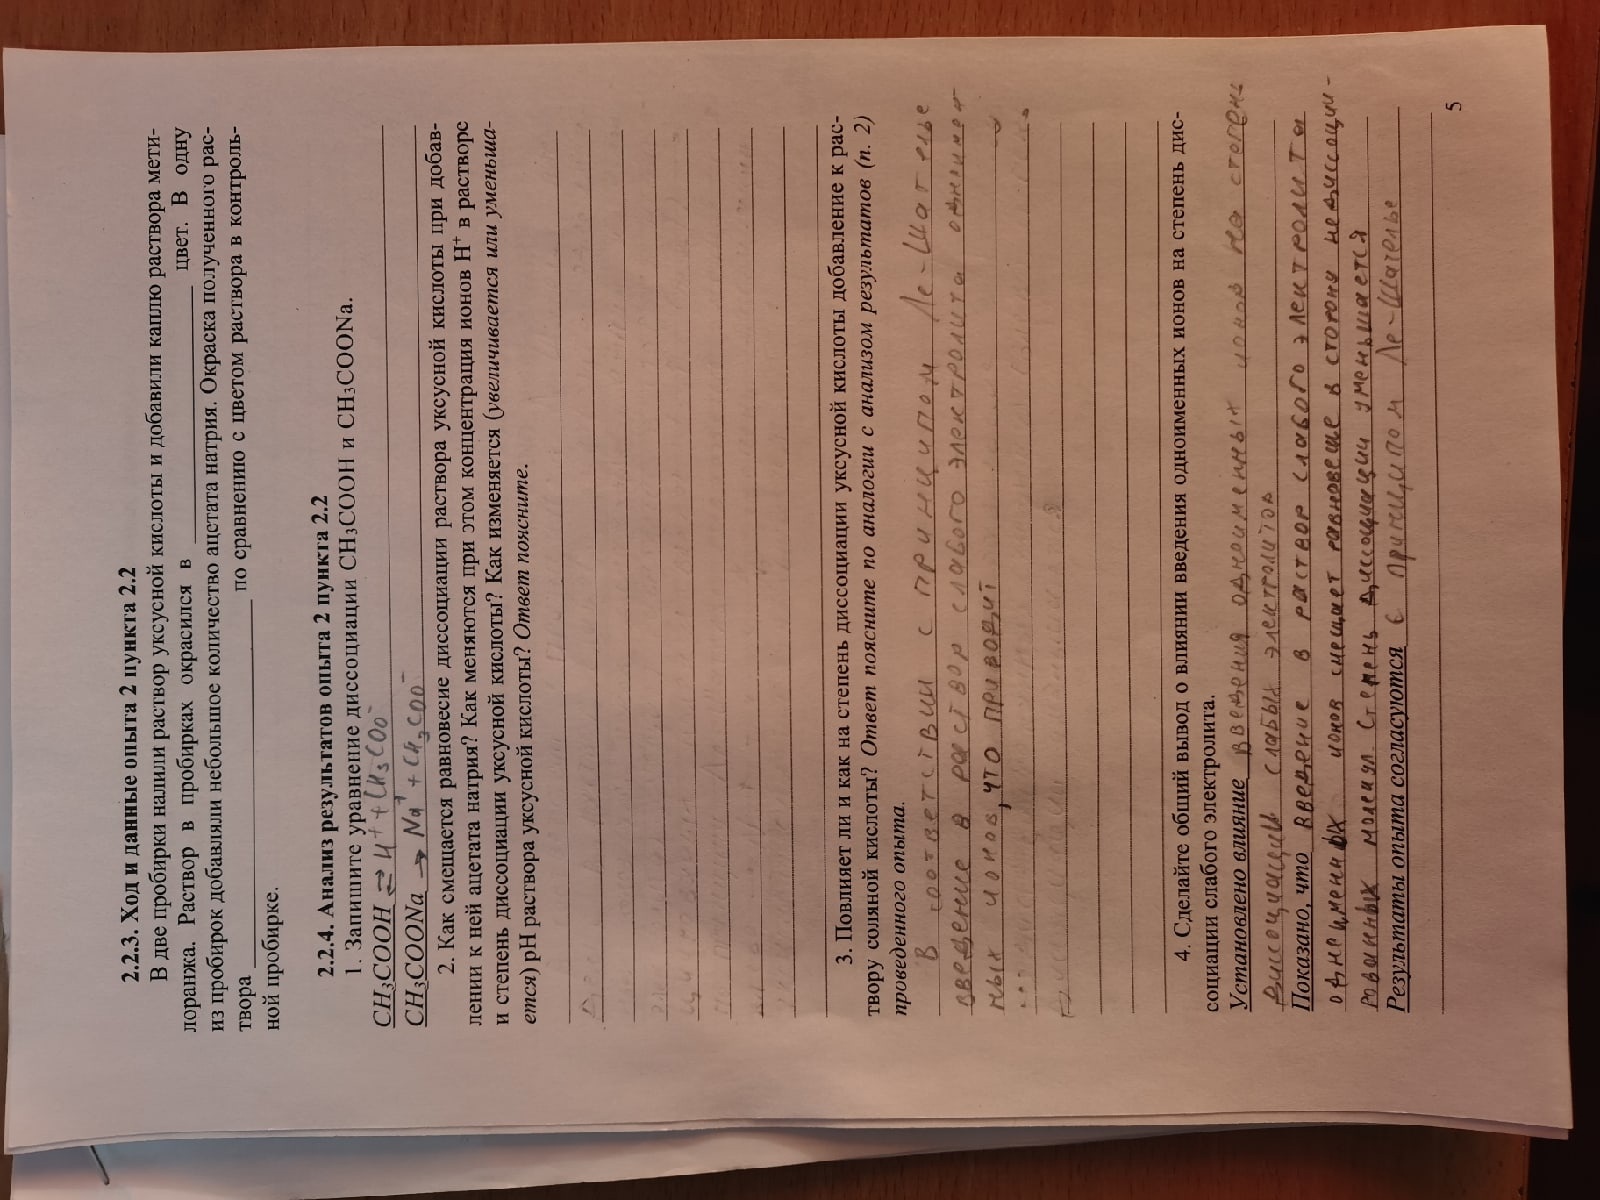 2.2.3. Ход и данные опыта 2 пункта 2.2
В две пробирки налили раствор уксусной кислоты и добавили каплю раствора мети-
лоранжа. Раствор в пробирках окрасился в ____ цвет. В одну
из пробирок добавляли небольшое количество ацетата натрия. Окраска полученного рас-
твора ____ по сравнению с цветом раствора в контроль-
ной пробирке.
2.2.4. Анализ результатов опыта 2 пункта 2.2
1. Запишите уравнение диссоциации CH₃COOH и CH₃COONa.
CH₃COOH ⇄ H⁺ + CH₃COO⁻
CH₃COONa → Na⁺ + CH₃COO⁻
2. Как смещается равновесие диссоциации раствора уксусной кислоты при добав-
лении к ней ацетата натрия? Как меняются при этом концентрация ионов H⁺ в растворе
и степень диссоциации уксусной кислоты? Как изменяется (увеличивается или уменьша-
ется) pH раствора уксусной кислоты? Ответ поясните.
3. Повлияет ли и как на степень диссоциации уксусной кислоты добавление к рас-
твору соляной кислоты? Ответ поясните по аналогии с анализом результатов (п. 2)
проведенного опыта.
В соответствии с принципом Ле-Шателье
введение в раствор слабого электролита одноимен
ных ионов, что приводит
4. Сделайте общий вывод о влиянии введения одноименных ионов на степень дис-
социации слабого электролита.
Установлено влияние введения одноименных ионов на степень
диссоциации слабых электролитов
Показано, что введение в раствор слабого электролита
одноименных ионов смещает равновесие в сторону недиссоции-
рованных молекул. Степень диссоциации уменьшается
Результаты опыта согласуются с принципом Ле-Шателье
5